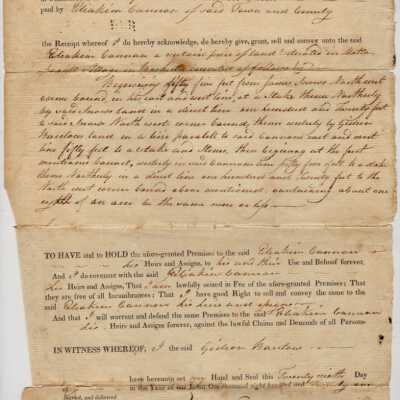 paid by Eliakim Cannon of said Town and County
the Receipt whereof I do hereby acknowledge, do hereby give, grant, sell and convey unto the said
Eliakim Cannon a certain piece of land situated in
Village in
Beginning fifty five feet from James Snows North west
corner bound, in his east and west line, at a Stake thence Northerly
by said Snows land in a direct line one hundred and twenty feet
to said Snows North west corner bound, thence westerly by Gideon
land in a line paralell to said Cannons east and west
line fifty feet to a stake and Stone, then begining at the first
mentioned bound, westerly in said Cannons line fifty five feet to a stake
thence Northerly in a direct line one hundred and twenty feet to the
North west corner bound above mentioned, containing about one
eighth of an acre be the same more or less
TO HAVE and to HOLD the afore-granted Premises to the said Eliakim Cannon
his Heirs and Assigns, to his and their Use and Behoof forever.
And I do covenant with the said Eliakim Cannon
his Heirs and Assigns, That I am lawfully seized in Fee of the afore-granted Premises; That
they are free of all Incumbrances; That I have good Right to sell and convey the same to the
said Eliakim Cannon his heirs and assigns
And that I will warrant and defend the same Premises to the said Eliakim Cannon
his Heirs and Assigns forever, against the lawful Claims and Demands of all Persons
IN WITNESS WHEREOF, I the said Gideon
have hereunto set my Hand and Seal this Twenty ninth Day
in the Year of our Lord, One thousand eight hundred and
Signed, Sealed, and delivered